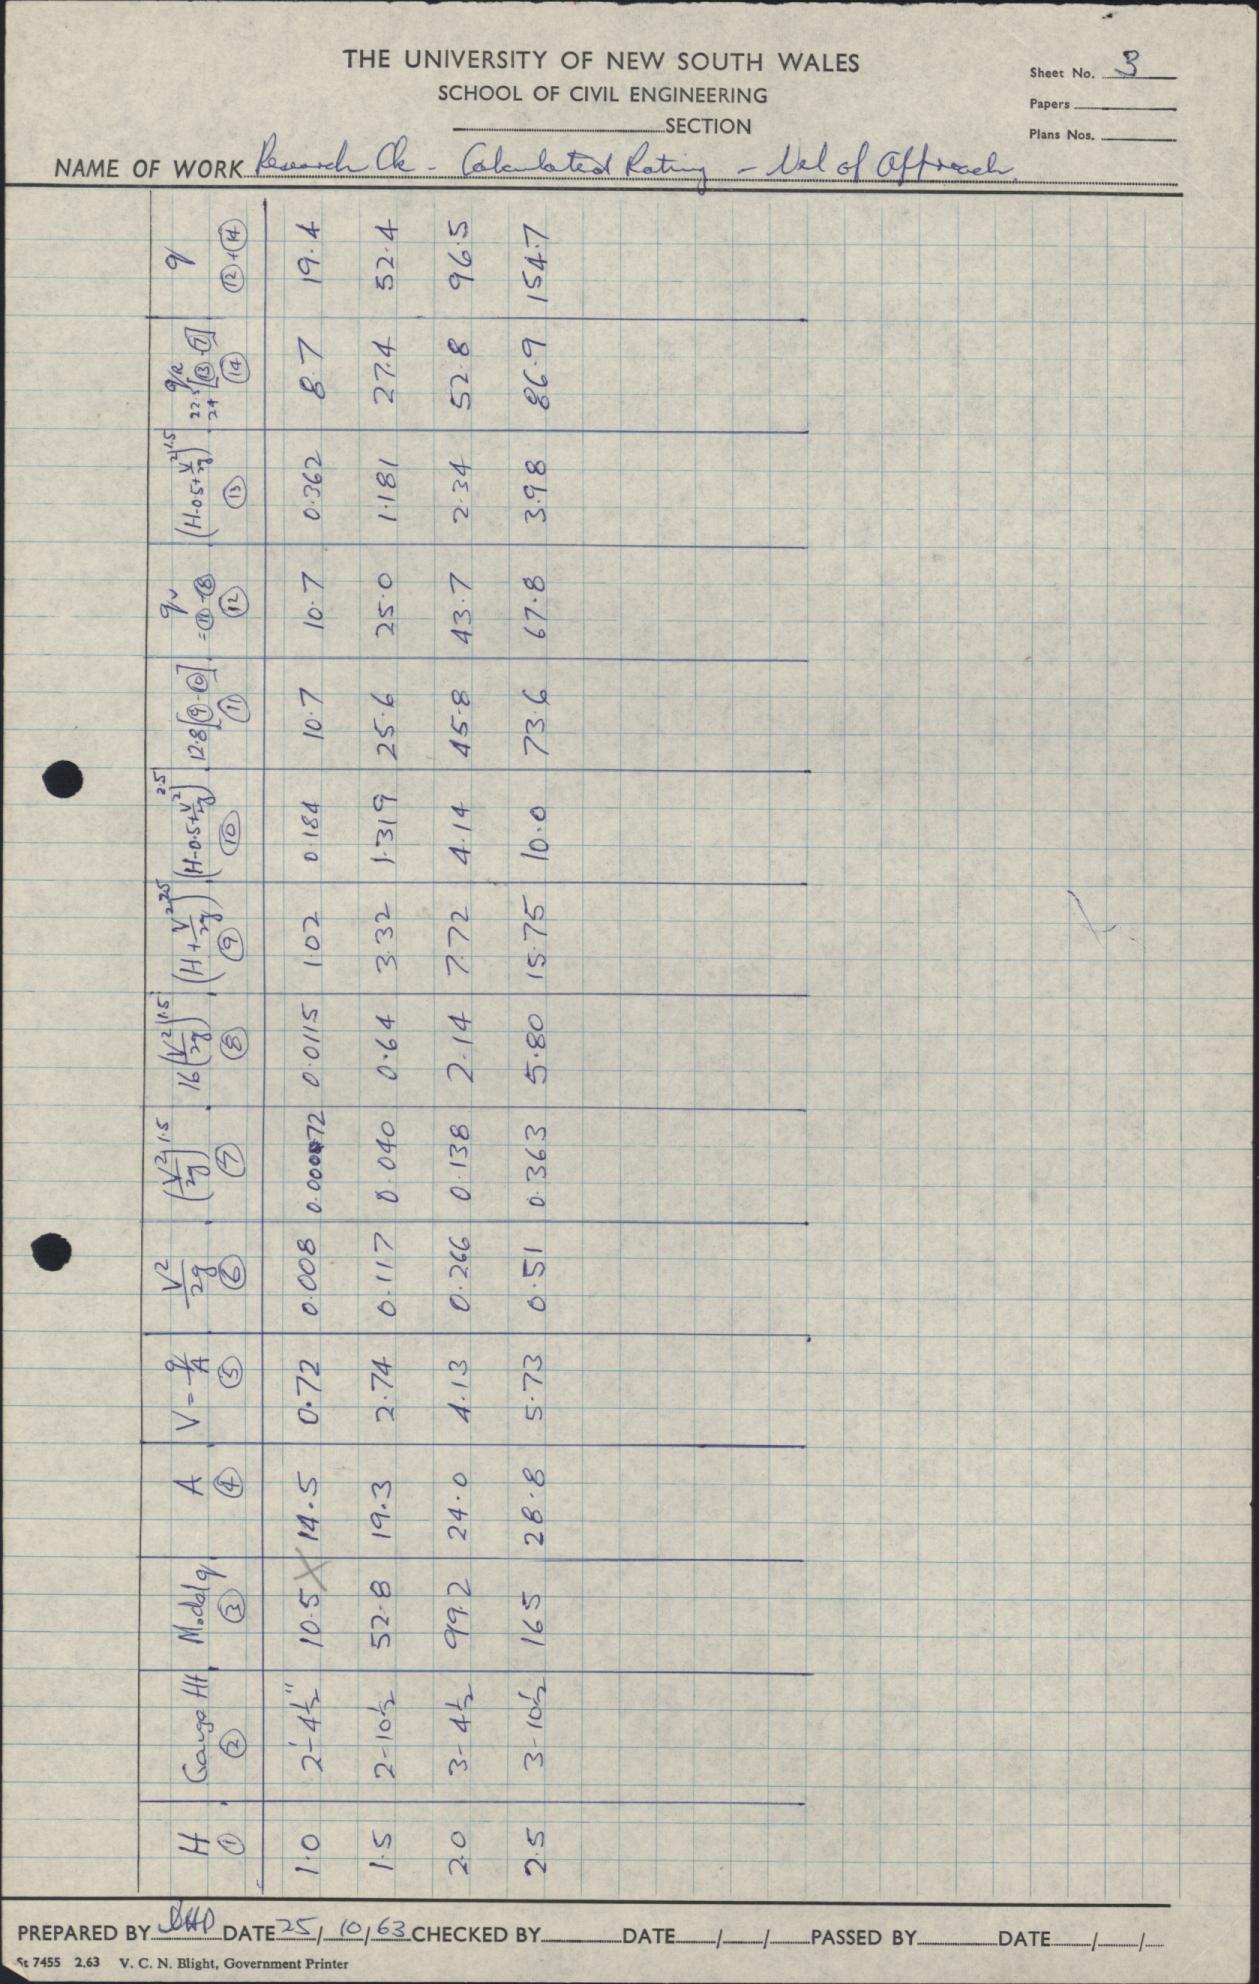 THE UNIVERSITY OF NEW SOUTH WALES
SCHOOL OF CIVIL ENGINEERING
SECTION
Sheet No. 3
Papers
Plans Nos.
NAME OF WORK Research Ck - Calculated Rating - Vel of Approach.
H ① | Gauge Ht. ② | Model q ③ | A ④ | V = q/A ⑤ | V²/2g ⑥ | (V²/2g)^1.5 ⑦ | 16(V²/2g)^1.5 ⑧ | (H + V²/2g)^2.5 ⑨ | (H-0.5+V²/2g)^2.5 ⑩ | 12.8[⑨-⑩] ⑪ | qv = ⑪-⑧ ⑫ | (H-0.5+V²/2g)^1.5 ⑬ | qR 22.5/24 [⑬-⑦] ⑭ | q ⑫+⑭
1.0 | 2'-4½" | 10.5 X | 14.5 | 0.72 | 0.008 | 0.00072 | 0.0115 | 1.02 | 0.184 | 10.7 | 10.7 | 0.362 | 8.7 | 19.4
1.5 | 2-10½ | 52.8 | 19.3 | 2.74 | 0.117 | 0.040 | 0.64 | 3.32 | 1.319 | 25.6 | 25.0 | 1.181 | 27.4 | 52.4
2.0 | 3-4½ | 99.2 | 24.0 | 4.13 | 0.266 | 0.138 | 2.14 | 7.72 | 4.14 | 45.8 | 43.7 | 2.34 | 52.8 | 96.5
2.5 | 3-10½ | 165 | 28.8 | 5.73 | 0.51 | 0.363 | 5.80 | 15.75 | 10.0 | 73.6 | 67.8 | 3.98 | 86.9 | 154.7
PREPARED BY DATE 25/10/63 CHECKED BY DATE / / PASSED BY DATE / /
St 7455 2.63 V. C. N. Blight, Government Printer